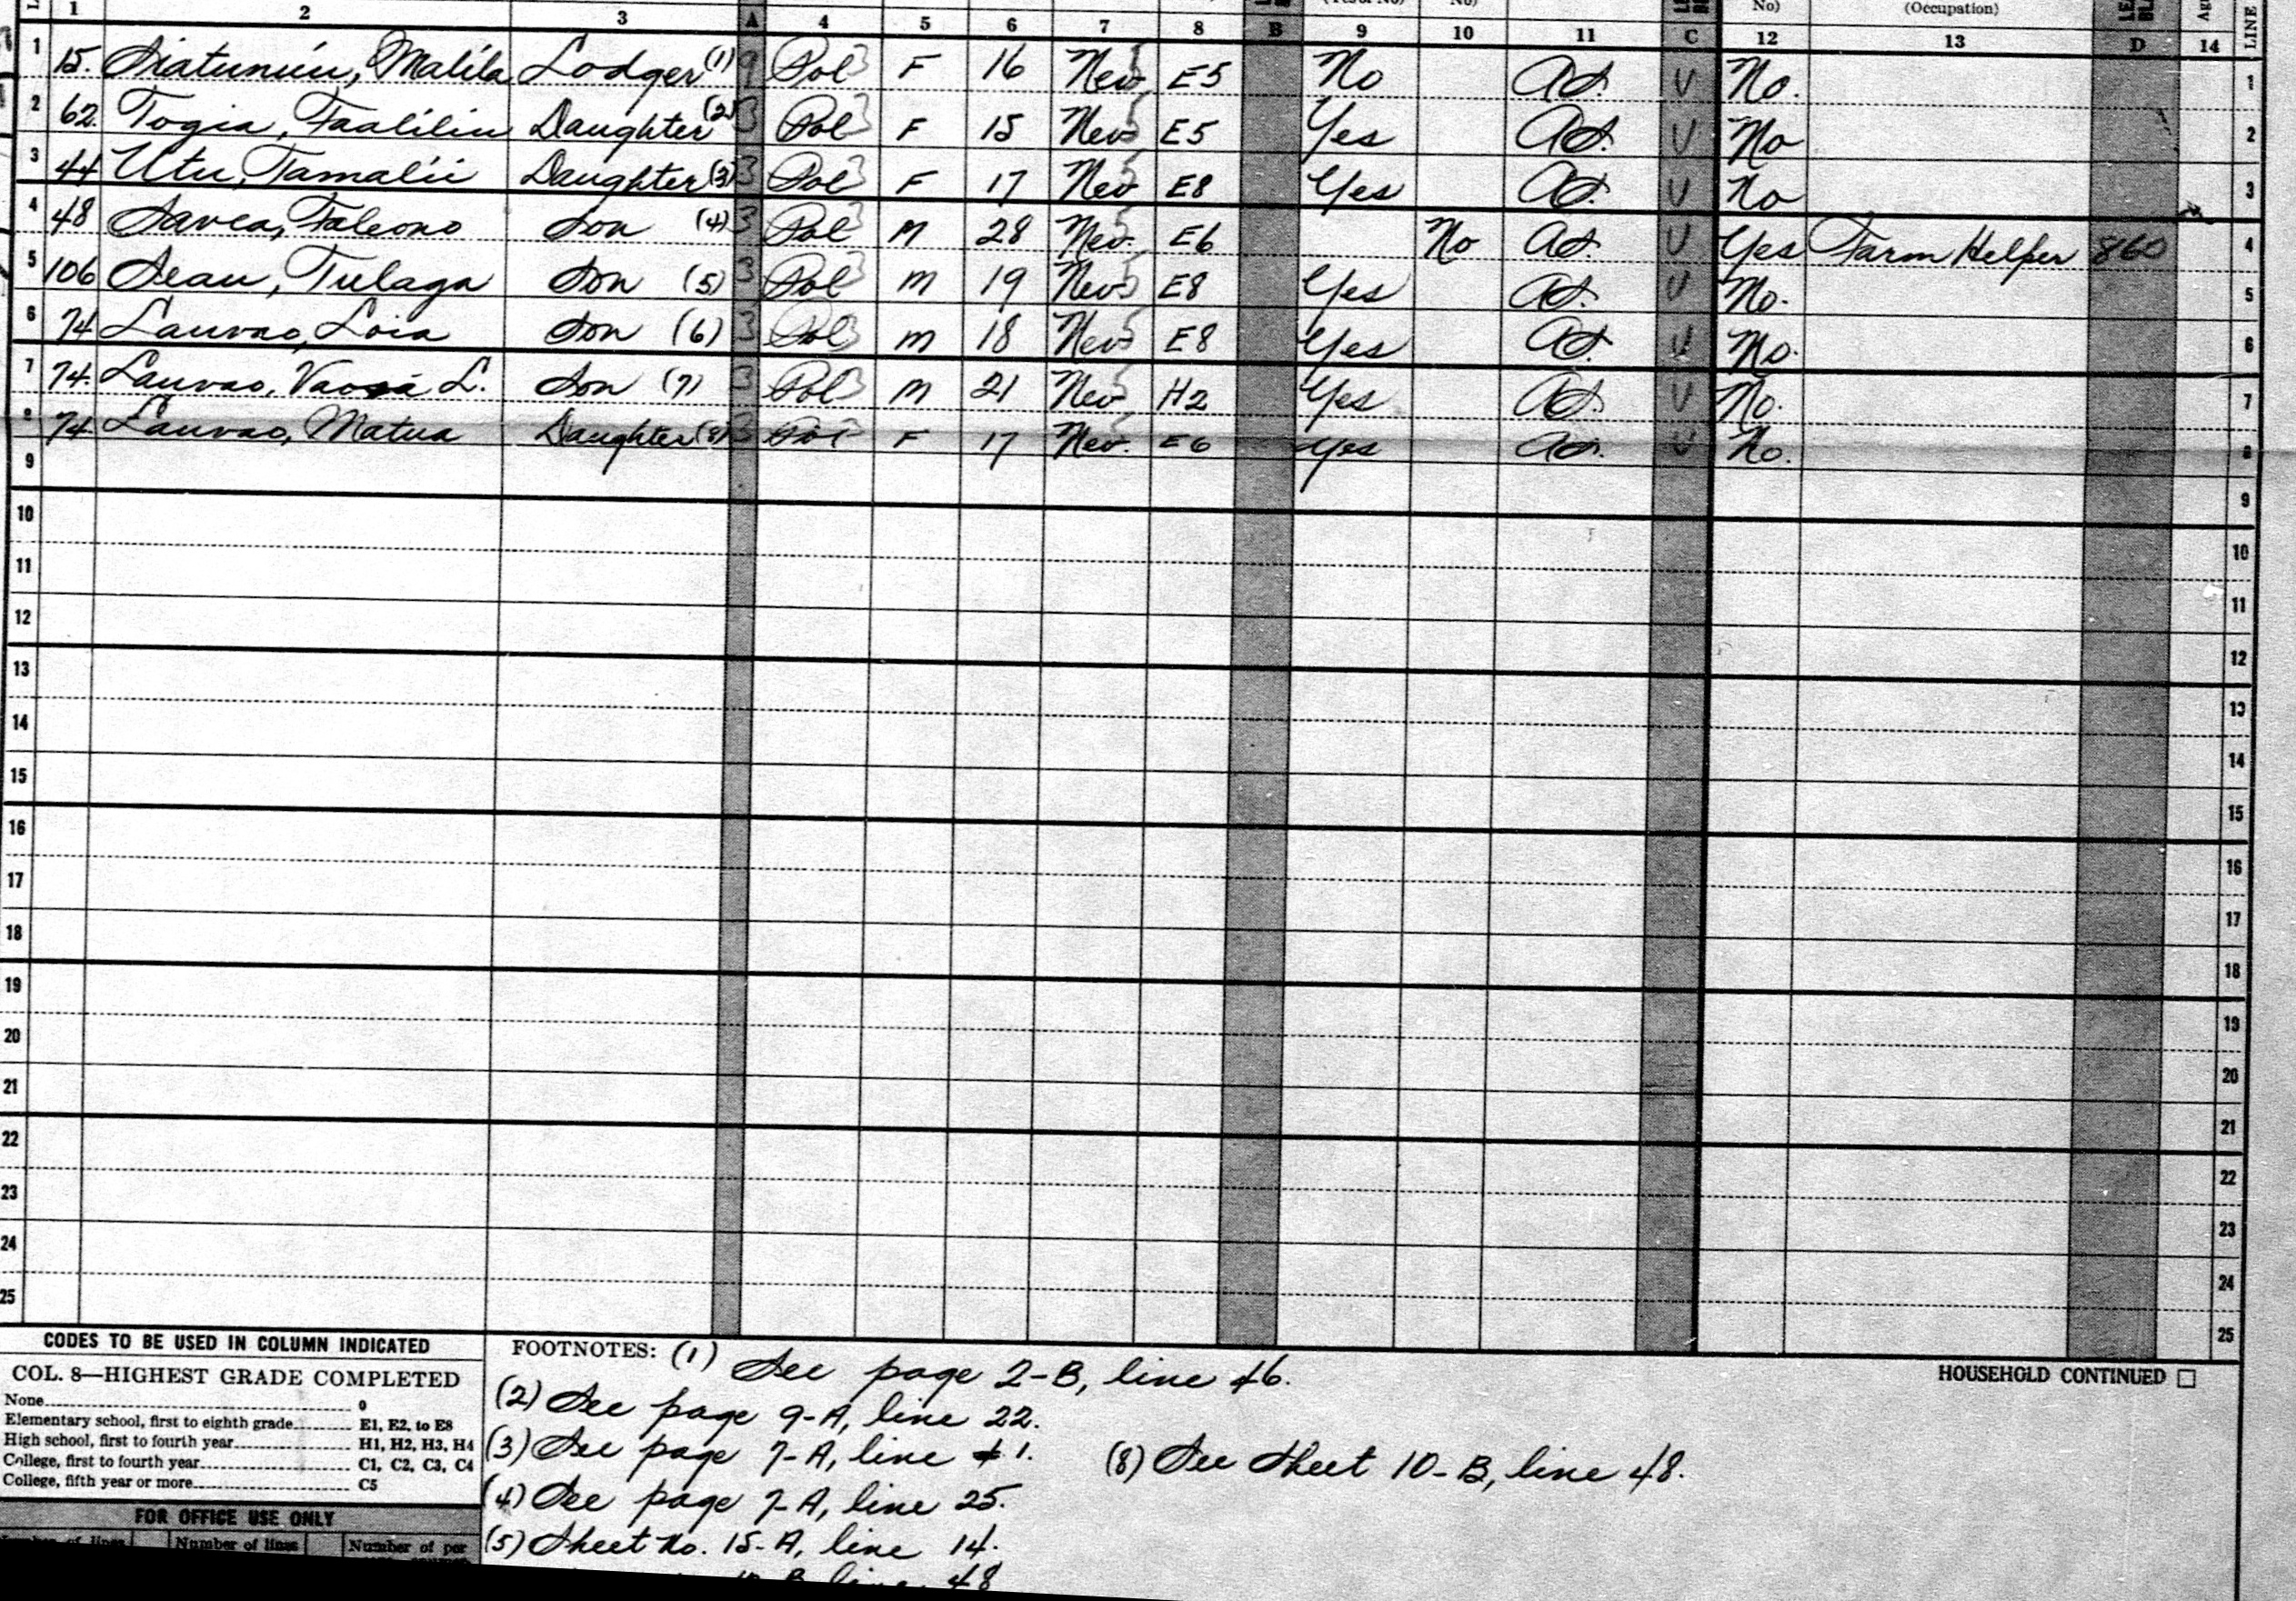 (Yes or No) No) No) (Occupation) Ag
1 2 3 A 4 5 6 7 8 B 9 10 11 C 12 13 D 14 LINE
1 15. Siatunuu, Malila Lodger (1) 9 Pol 3 F 16 Nev 5 E5 No Ad. V No. 1
2 62. Togia, Faaliliu Daughter (2) 3 Pol 3 F 15 Nev 5 E5 Yes Ad. V No 2
3 44 Utu, Tamalii Daughter (3) 3 Pol 3 F 17 Nev 5 E8 Yes Ad. V No 3
4 48 Savea, Faleono Son (4) 3 Pol 3 M 28 Nev. 5 E6 No Ad. V Yes Farm Helper 860 4
5 106 Seau, Tulaga Son (5) 3 Pol 3 M 19 Nev 5 E8 Yes Ad. V No. 5
6 74 Lauvao, Loia Son (6) 3 Pol 3 M 18 Nev 5 E8 Yes Ad. V No. 6
7 74. Lauvao, L. Son (7) 3 Pol 3 M 21 Nev 5 H2 Yes Ad. V No. 7
8 74. Lauvao, Matua Daughter (8) 3 Pol 3 F 17 Nev. 5 E6 Yes Ad. V No. 8
9 9
10 10
11 11
12 12
13 13
14 14
15 15
16 16
17 17
18 18
19 19
20 20
21 21
22 22
23 23
24 24
25 25
CODES TO BE USED IN COLUMN INDICATED
COL. 8—HIGHEST GRADE COMPLETED
None 0
Elementary school, first to eighth grade E1, E2, to E8
High school, first to fourth year H1, H2, H3, H4
College, first to fourth year C1, C2, C3, C4
College, fifth year or more C5
FOR OFFICE USE ONLY
Number of lines Number of lines Number of per
FOOTNOTES: (1) See page 2-B, line 46.
(2) See page 9-A, line 22.
(3) See page 7-A, line 1.
(4) See page 7-A, line 25.
(5) Sheet No. 15-A, line 14.
10-B, line 48
(8) See Sheet 10-B, line 48.
HOUSEHOLD CONTINUED □